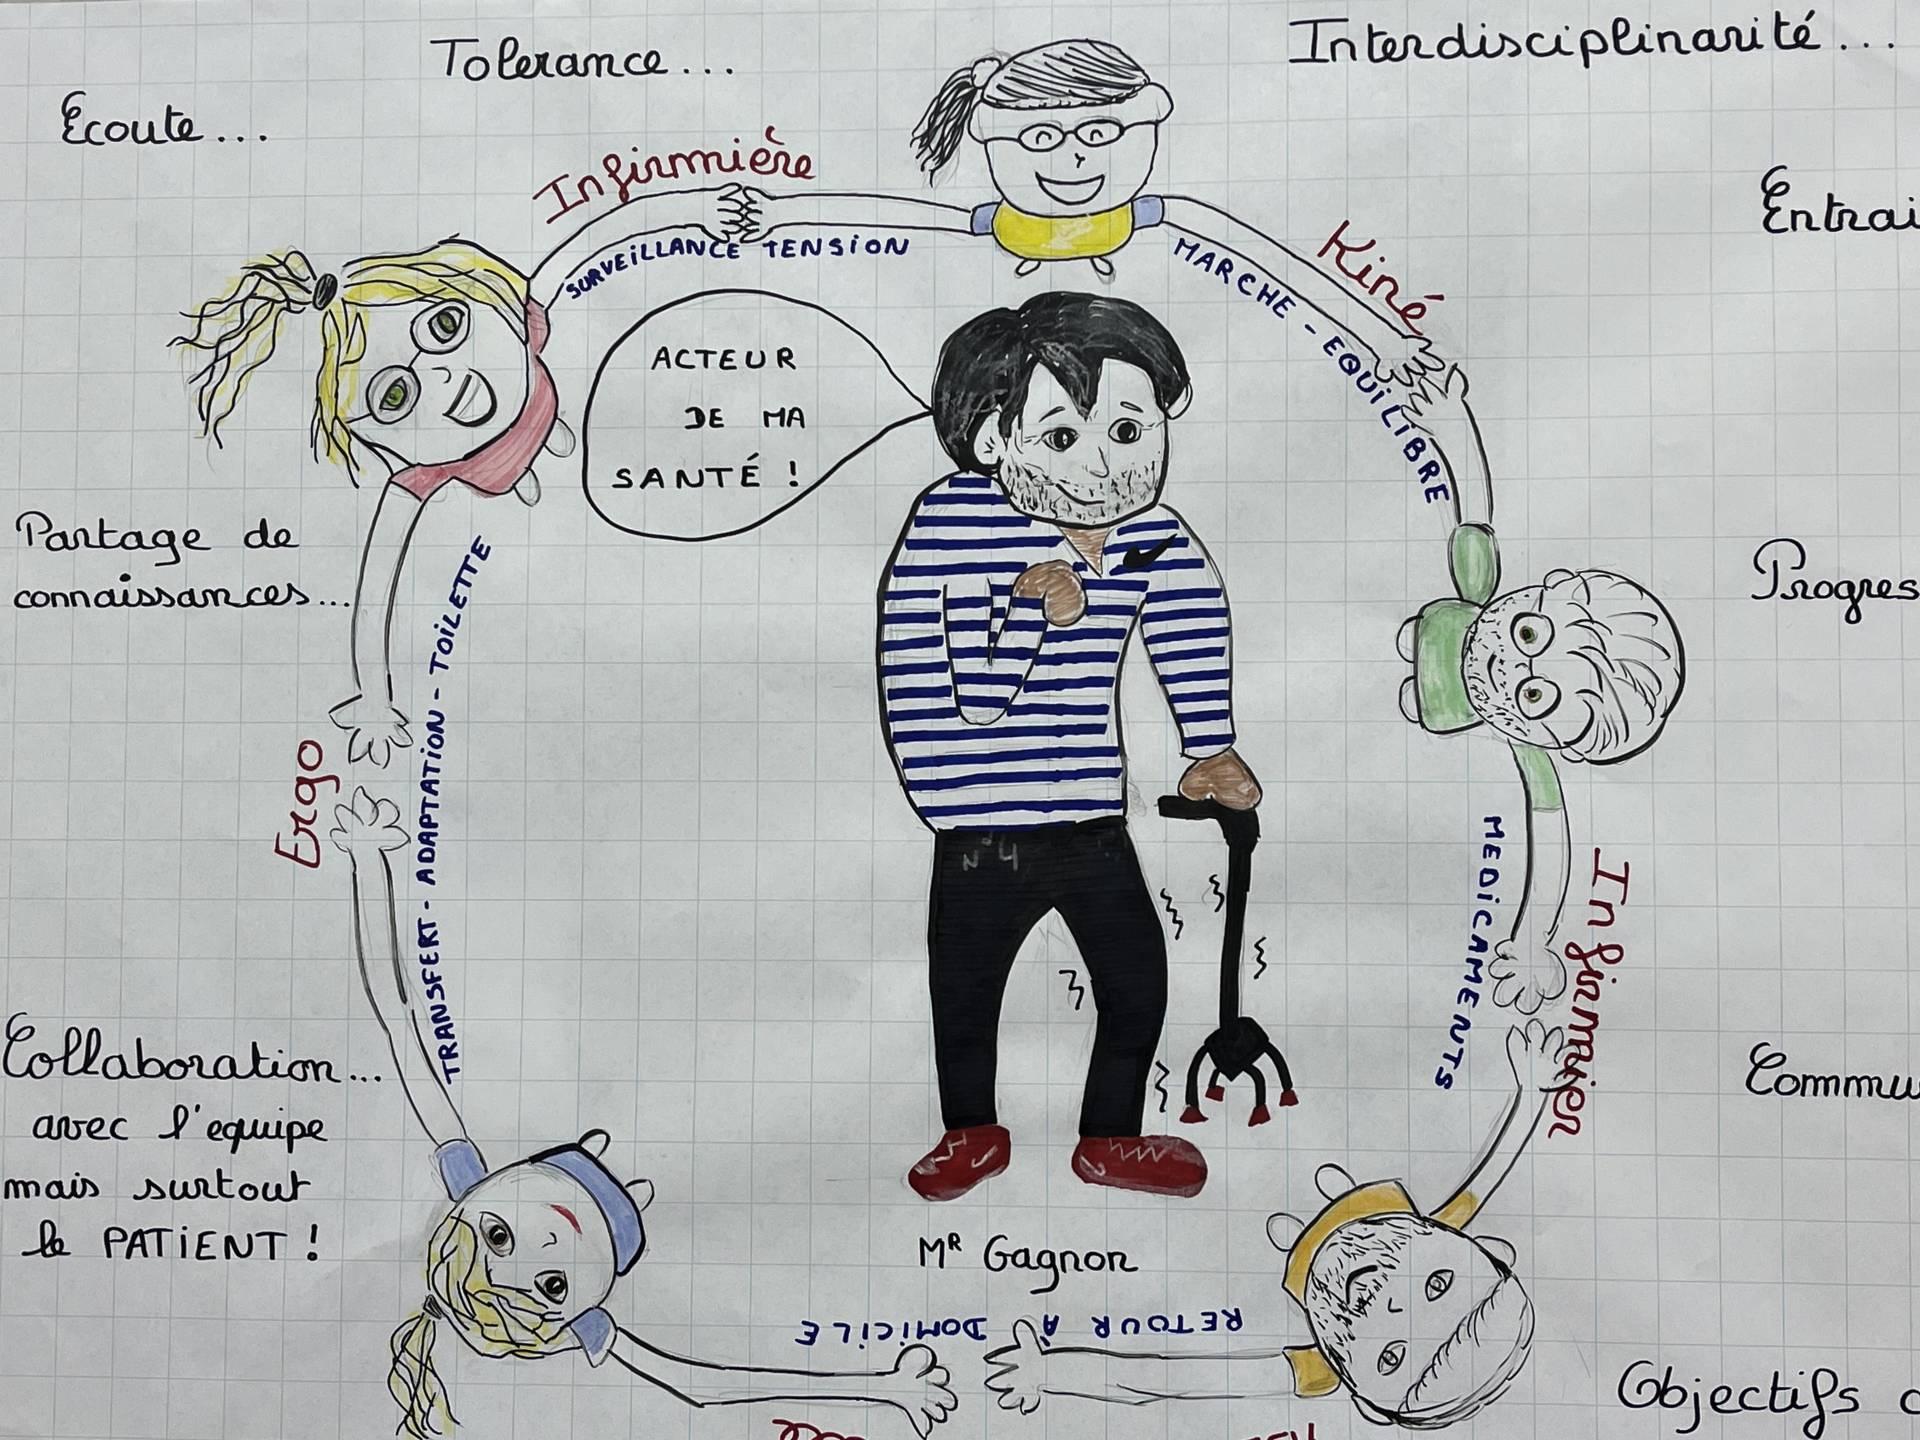 Tolerance...
Interdisciplinarité...
Ecoute...
Infirmière
SURVEILLANCE TENSION
Kiné
MARCHE - EQUILIBRE
ACTEUR
DE MA
SANTÉ !
Partage de
connaissances...
TRANSFERT - ADAPTATION - TOILETTE
Ergo
N°4
MEDICAMENTS
Infirmier
Collaboration...
avec l'equipe
mais surtout
le PATIENT !
Mr Gagnon
RETOUR À DOMICILE
Objectifs